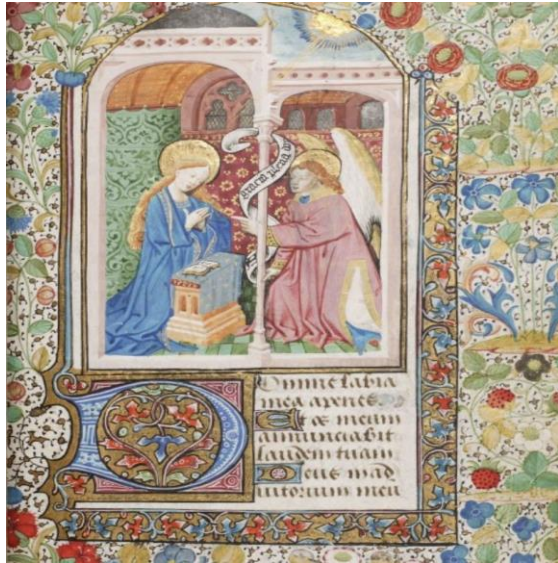 gracia plena
Domine labia
mea aperies
Et os meum
annunciabit
laudem tuam
Deus in ad
iutorium meu